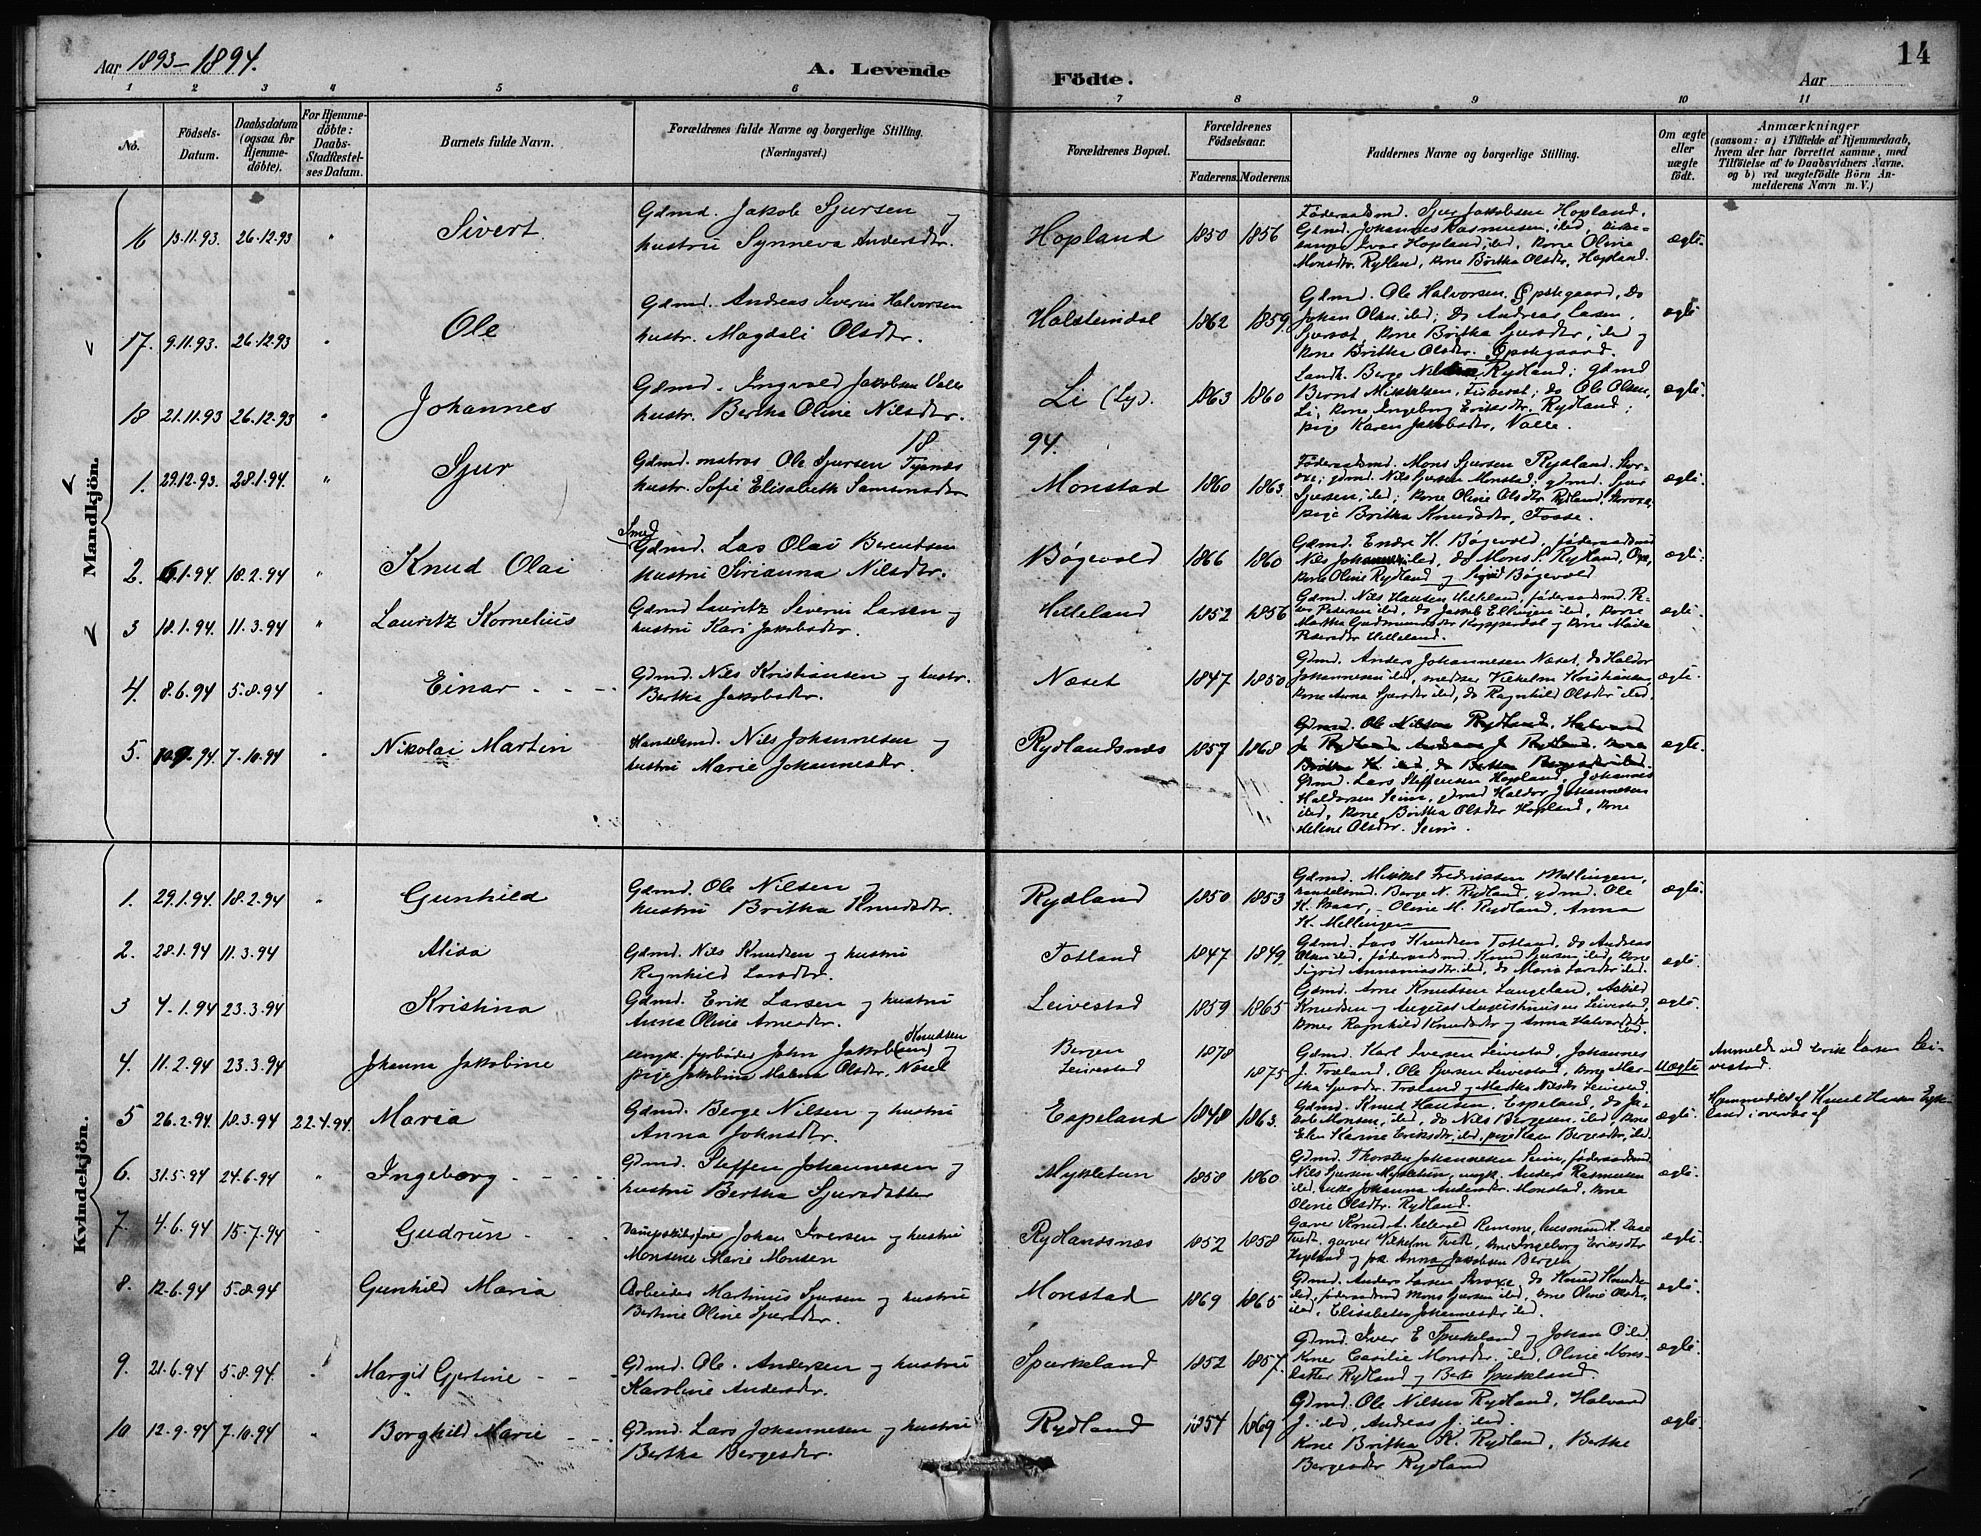 Aar 1893-1894.
A. Levende
Födte.
Aar
14
1 2 3 4 5 6 7 8 9 10 11
No.
Födsels-Datum.
Daabsdatum (ogsaa for Hjemme-döbte).
For Hjemme-döbte: Daabs-Stadfæstel-ses Datum.
Barnets fulde Navn.
Forældrenes fulde Navne og borgerlige Stilling. (Næringsvei.)
Forældrenes Bopæl.
Forældrenes Födselsaar.
Faderens. Moderens.
Faddernes Navne og borgerlige Stilling.
Om ægte eller uægte födt.
Anmærkninger
(saasom: a) i Tilfælde af Hjemmedaab, hvem der har forrettet samme, med Tilföielse af to Daabsvidners Navne, og b) ved uægtefödte Börn An-melderens Navn m. V.)
Mandkjön.
16 13.11.93. 26.12.93 " Sivert
Gdmd. Jakob Sjursen og
hustru Synneva Andersdtr.
Hopland 1850 1856
Föderaadsmd. Sjur Jakobsen Hopland,
Gdmd. Johannes Rasmussen, ibd,
Ivar Hopland, ibd, kone Oline
Monsdtr. Rydland, kone Britha Olsdtr. Hopland.
ægte.
17. 9.11.93. 26.12.93 " Ole
Gdmd. Andreas Severin Halvorsen
hustr. Magdeli Olsdtr.
Holsteindal 1862 1859
Gdmd. Ole Halvorsen Opstegaard, do
Johan Olsen, ibd; do Andreas
kone Britha Sjursdtr, ibd og
kone Britha Olsdtr. Opstegaard.
ægte
18 21.11.93 26.12.93 " Johannes
Gdmd. Ingvald Jakobsen Valle
hustr. Bertha Oline Nilsdtr.
Li (Ly). 1863 1860
Landh. Berge Nilsen Rydland; gdmd
Bernt Mikkelsen, do Ole Olsen,
Li; kone Ingeborg Eriksdtr. Rydland;
pige Karen Jakobsdtr, Valle.
ægte.
18 94.
1. 29.12.93. 28.1.94. " Sjur
Gdmd. Ole Sjursen
hustr. Sofie Elisabeth Samsonsdtr
Monstad 1860 1863
Föderaadsmd. Mons Sjursen Rydland.
gdmd. Nils Sjursen Monstad, gdmd. Sjur
Sjursen, ibd; kone Oline Olsdtr Rydland,
pige Britha Knudsdtr, Fosse.
ægte.
2. 6.1.94. 18.2.94 " Knud Olai
Smed
Gdmd. Lars Olai Berentsen
hustru Sirianna Nilsdtr.
Bøgevold 1866 1860
Gdmd. Endre H. Bøgevold, föderaadsmd
Nils ibd, do Mons S. Rydland,
kone Oline Rydland og Sigrid Bøgevold
ægte.
3 18.1.94. 11.3.94 " Lauritz Kornelius
Gdmd Lauritz Severin Larsen og
hustru Kari Jakobsdtr.
Helleland 1852 1856
Gdmd. Nils Hansen Helleland, föderaadsmd.
Pedersen ibd, do Jakob Ellingsen ibd, kone
Martha Gudmundsdtr Kopperdal og kone
Pedersdtr Helleland.
ægte.
4. 8.6.94 5.8.94 Einar
Gdmd. Nils Kristiansen og hustr.
Bertha Jakobsdtr.
Næset 1847 1850
Gdmd. Anders Johannesen Næset, do Haldor
Johannesen ibd, Vilhelm Kristiansen,
kone Anna Sjursdtr ibd, do Ragnhild Olsdtr ibd.
ægte.
5. 94. 7.10.94 " Nikolai Martin
Handelsmd. Nils Johannesen og
hustru Marie Johannesdtr.
Rydlandsnæs 1857 1868
Gdmd. Ole Nilsen Rydland, Halvard
J. Rydland Andreas J. Rydland. kone
Britha K. ibd, do Bertha Bergesdtr ibd.
Gdmd. Lars Steffensen Hopland, Johannes
Haldorsen Seim, gdmd Haldor Johannesen
ibd, kone Britha Olsdtr Hopland, kone
Helene Olsdtr. Seim.
ægte.
Kvindekjön.
1. 29.1.94. 18.2.94 " Gunhild
Gdmd. Ole Nilsen og
hustru Britha Knudsdtr.
Rydland 1850 1853
Gdmd. Mikkel Fredriksen Mellingen,
handelsmd. Berge N. Rydland, gdmd. Ole
K. Oline M. Rydland, Anna
K. Mellingen
ægte.
2. 28.1.94 11.3.94 Alida
Gdmd. Nils Knudsen og hustru
Ragnhild Larsdtr.
Totland 1847 1849
Gdmd. Lars Knudsen Totland, do Andreas
Olsen ibd, föderaadsmd. Knud Sjursen ibd, kone
Sigrid ibd, do Maria Larsdtr ibd.
ægte.
3 7.1.94 23.3.94 Kristina
Gdmd. Erik Larsen og hustru
Anna Oline Arnesdtr.
Leivestad 1859 1865
Gdmd. Arne Knudsen Langeland,
Knudsen og August Augustinusen Leivestad,
koner Ragnhild Knudsdtr og Anna Halvorsdtr
ibd.
ægte
4. 11.2.94 23.3.94 Johanna Jakobine
ungk. fyrbøder John Jakob(sen) Knudsen og
pige Jakobina Malena Olsdtr.
Bergen
Leivestad
1878
1875
Gdmd. Karl Iversen Leivestad, Johannes
J. Træland, Ole Sjursen Leivestad, kone
Sjursdtr. Træland og Martha Nilsdtr Leivestad.
uægte
Anmeldt ved Erik Larsen Lei-
vestad.
5 26.2.94 18.3.94 22.4.94 Maria
Gdmd. Berge Nilsen og hustru
Anna Johnsdtr.
Espeland 1848 1863
Gdmd. Knud Hansen, Espeland, do Ja-
kob Monsen, ibd, do Nils Bergesen, ibd, kone
Karine Eriksdtr, ibd, pige Bergesdtr, ibd.
ægte.
Hjemmedøbt af Knud Hansen
6. 31.5.94 24.6.94 " Ingeborg
Gdmd. Steffen Johannesen og
hustru Bertha Sjursdatter
Mykletun 1858 1860
Gdmd. Thorsten Johannesen Seim, föderaadsmd.
Nils Sjursen Mykletun, ungk. Anders Rasmussen
ibd, enke Johanna Andersdtr. Monstad, kone
Oline Olsdtr. Rydland.
ægte.
7. 4.6.94 15.7.94 Gudrun
Johan Iversen og hustru
Monsine Marie Monsen
Rydlandsnæs 1852 1858
Garver Knud Remme, husmand
Tvedt, garver Vilhelm Tvedt, kone Ingeborg Eriksdtr
Hopland og frk Anna Jakobsen Bergen
ægte.
8. 12.6.94 5.8.94 Gunhild Maria
Arbeider Martinus Sjursen og hustru
Bertine Oline Sjursdtr.
Monstad 1869 1865
Gdmd. Anders Larsen do Knud Knudsen
ibd, föderaadsmd Mons Sjursen ibd, kone Oline Olsdtr,
ibd, Elisabeth Johannesdtr ibd.
ægte.
9. 21.6.94 5.8.94. Margit Gjertine
Gdmd. Ole Andersen og hustru
Karoline Andersdtr.
Spurkeland 1852 1857
Gdmd. Iver E Spurkeland og Johan O ibd.
Koner Cecilie Monsdtr. ibd, Oline Mons-
datter Rydland og Berte Spurkeland.
ægte.
10 12.9.94 7.10.94 " Borghild Marie
Gdmd. Lars Johannesen og hustru
Bertha Bergesdtr
Rydland 1854 1869
Gdmd. Ole Nilsen Rydland, Halvard
J. ibd, Andreas J. ibd.
Kone Britha K. Rydland, Bertha
Bergesdtr Rydland
ægte.